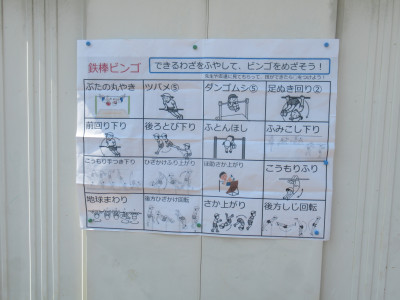 鉄棒ビンゴ
できるわざをふやして、ビンゴをめざそう！
ぶたの丸やき
ツバメ⑤
ダンゴムシ⑤
足ぬき回り②
前回り下り
後ろとび下り
ふとんほし
ふみこし下り
こうもり手つき下り
ひざかけふり上がり
補助さか上がり
こうもりふり
地球まわり
後方ひざかけ回転
さか上がり
後方しじ回転